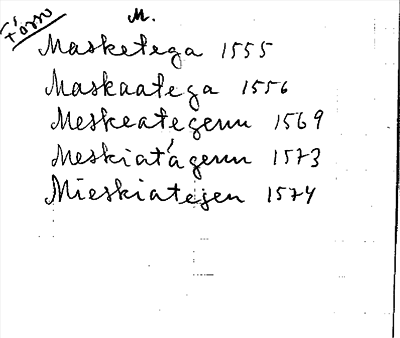 Förro
M.
Masketega 1555
Maskaatega 1556
Meskeategenn 1569
Meskiatágenn 1573
Mieskiategen 1574